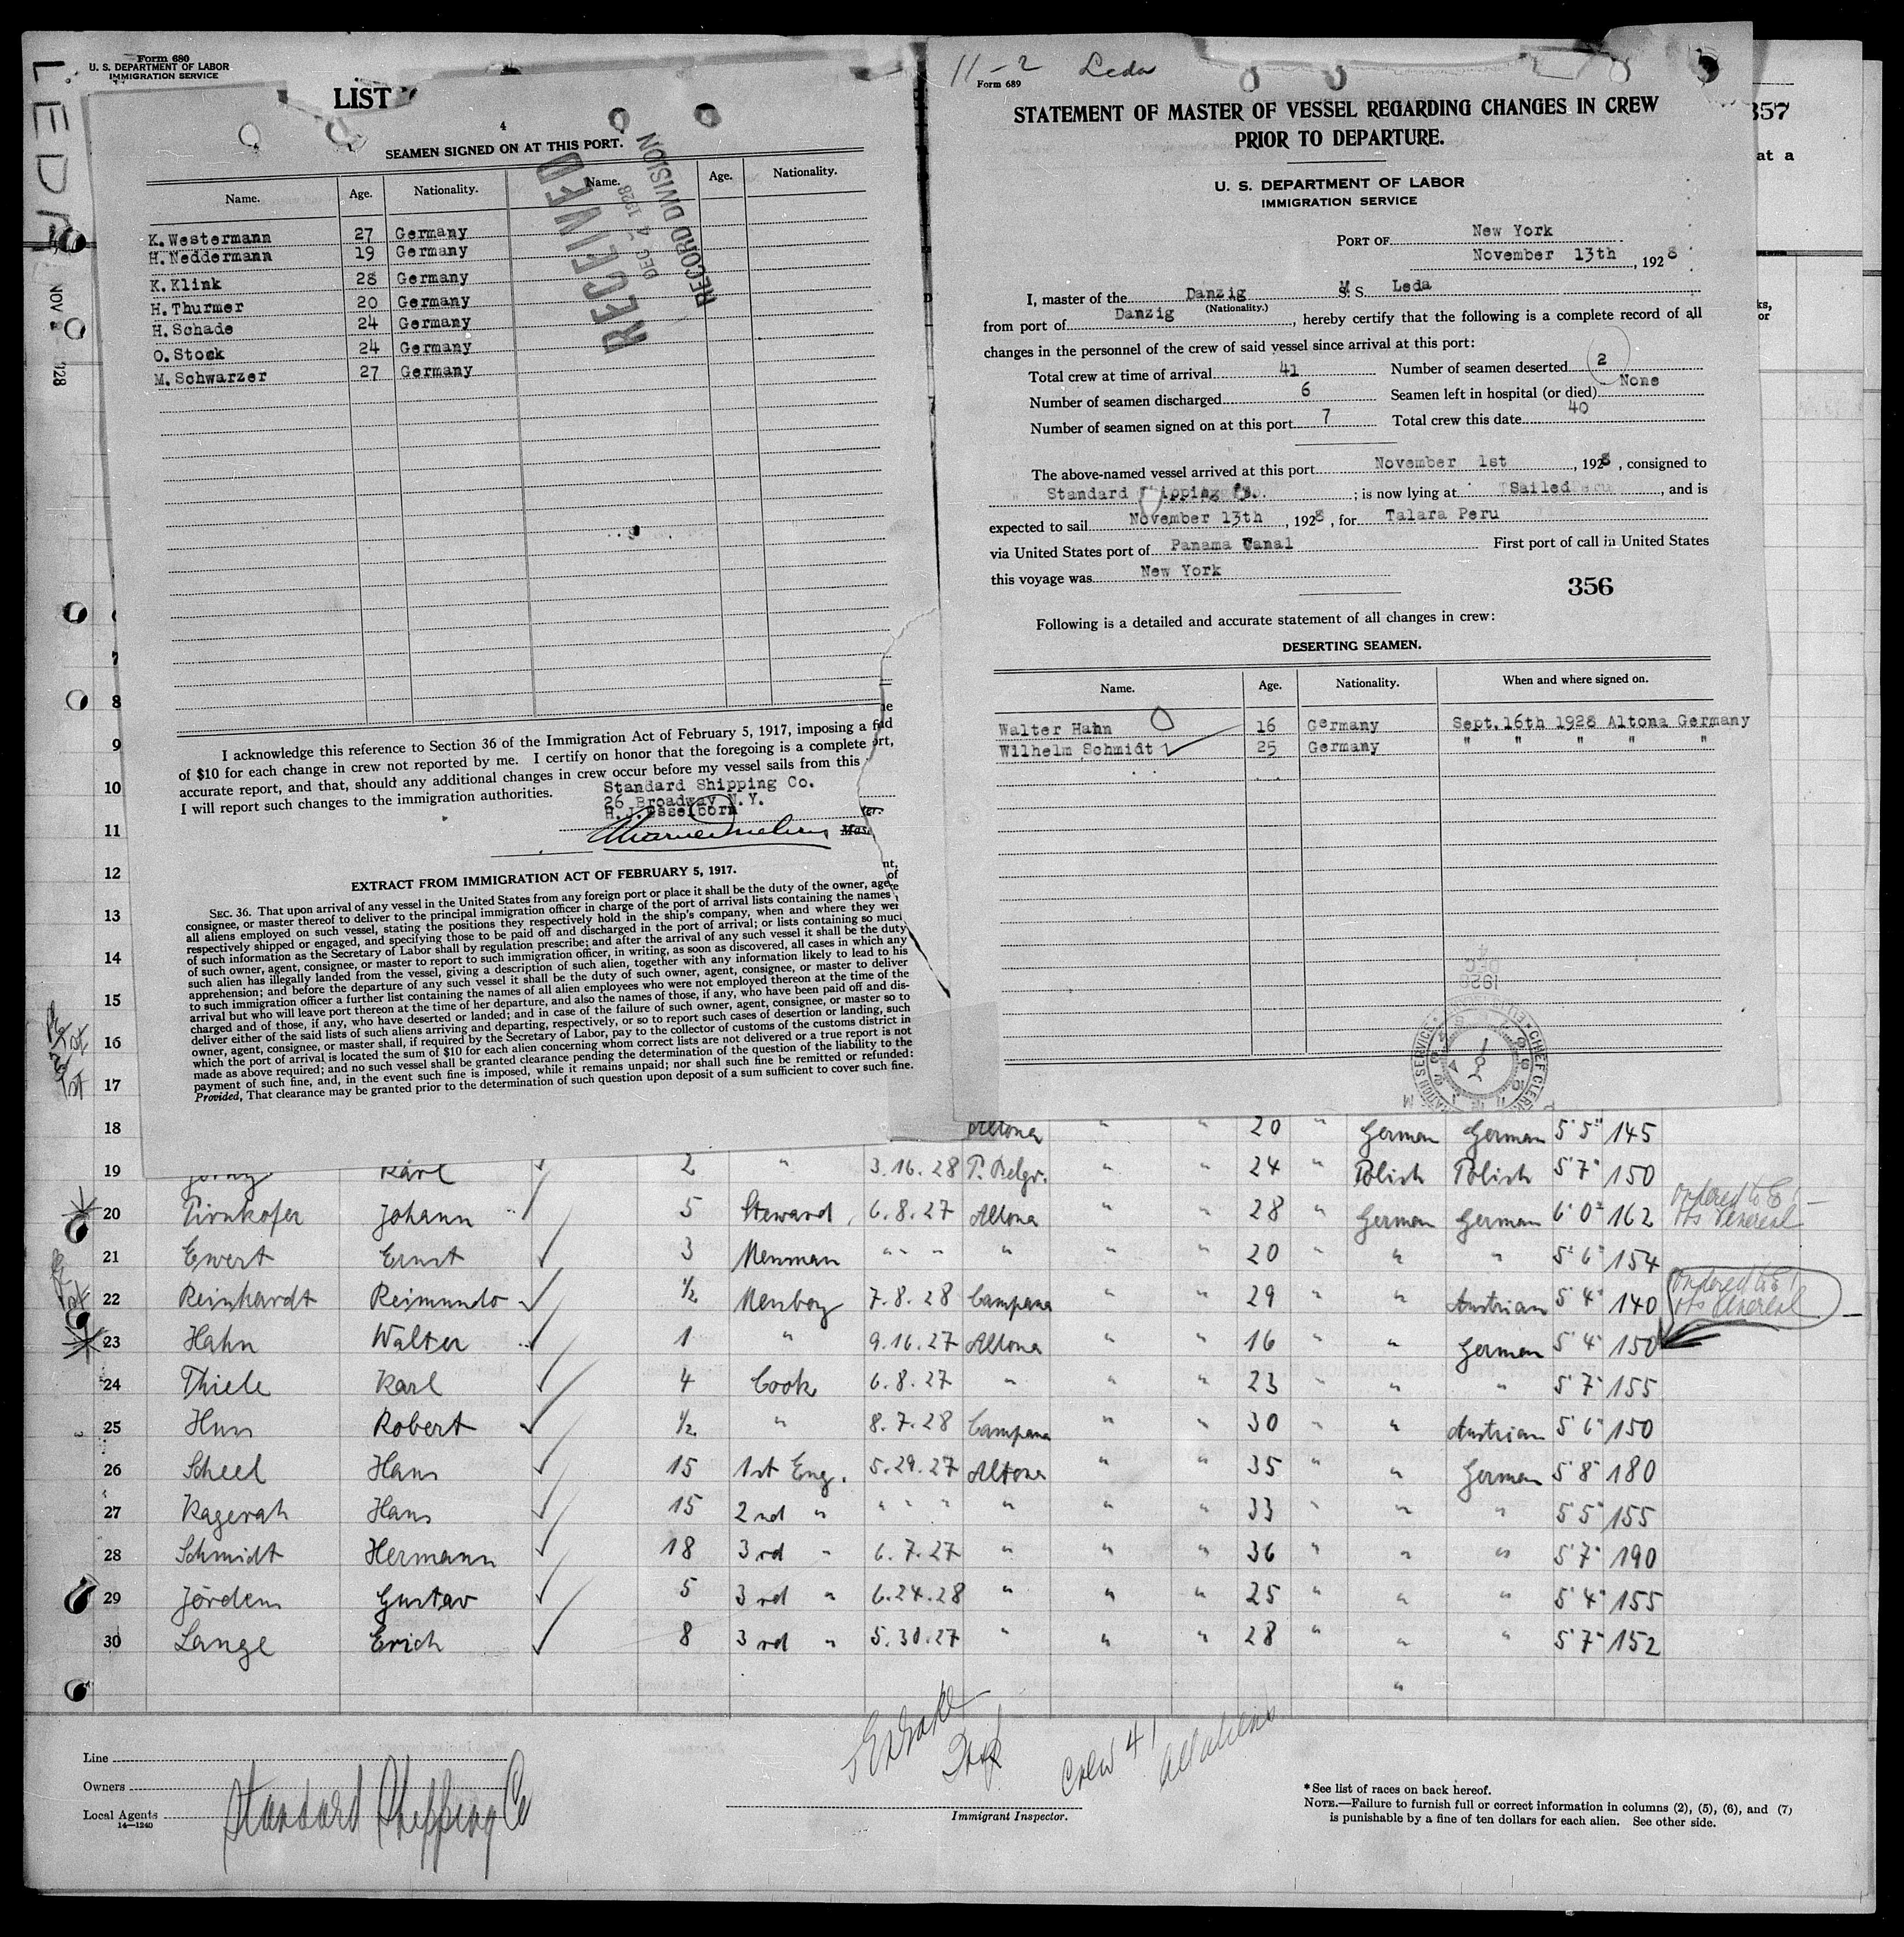 Form 680
U. S. DEPARTMENT OF LABOR
IMMIGRATION SERVICE
LIST
LEDA
NOV 2 '128
4
SEAMEN SIGNED ON AT THIS PORT.
Name. Age. Nationality. Name. Age. Nationality.
K. Westermann 27 Germany
H. Neddermann 19 Germany
K. Klink 28 Germany
H. Thurmer 20 Germany
H. Schade 24 Germany
O. Stock 24 Germany
M. Schwarzer 27 Germany
RECEIVED
DEC 4 1928
RECORD DIVISION
I acknowledge this reference to Section 36 of the Immigration Act of February 5, 1917, imposing a
of $10 for each change in crew not reported by me. I certify on honor that the foregoing is a complete
accurate report, and that, should any additional changes in crew occur before my vessel sails from this
I will report such changes to the immigration authorities.
Standard Shipping Co.
26 Broadway N.Y.
H. J. Esselborn
EXTRACT FROM IMMIGRATION ACT OF FEBRUARY 5, 1917.
SEC. 36. That upon arrival of any vessel in the United States from any foreign port or place it shall be the duty of the owner,
consignee, or master thereof to deliver to the principal immigration officer in charge of the port of arrival lists containing the names
all aliens employed on such vessel, stating the positions they respectively hold in the ship's company, when and where they
respectively shipped or engaged, and specifying those to be paid off and discharged in the port of arrival; or lists containing so
of such information as the Secretary of Labor shall by regulation prescribe; and after the arrival of any such vessel it shall be the duty
of such owner, agent, consignee, or master to report to such immigration officer, in writing, as soon as discovered, all cases in which any
such alien has illegally landed from the vessel, giving a description of such alien, together with any information likely to lead to his
apprehension; and before the departure of any such vessel it shall be the duty of such owner, agent, consignee, or master to deliver
to such immigration officer a further list containing the names of all alien employees who were not employed thereon at the time of the
arrival but who will leave port thereon at the time of her departure, and also the names of those, if any, who have been paid off and dis-
charged and of those, if any, who have deserted or landed; and in case of the failure of such owner, agent, consignee, or master so to
deliver either of the said lists of such aliens arriving and departing, respectively, or so to report such cases of desertion or landing, such
owner, agent, consignee, or master shall, if required by the Secretary of Labor, pay to the collector of customs of the customs district in
which the port of arrival is located the sum of $10 for each alien concerning whom correct lists are not delivered or a true report is not
made as above required; and no such vessel shall be granted clearance pending the determination of the question of the liability to the
payment of such fine, and, in the event such fine is imposed, while it remains unpaid; nor shall such fine be remitted or refunded:
Provided, That clearance may be granted prior to the determination of such question upon deposit of a sum sufficient to cover such fine.
11-2 Leda
Form 689
STATEMENT OF MASTER OF VESSEL REGARDING CHANGES IN CREW
PRIOR TO DEPARTURE.
U. S. DEPARTMENT OF LABOR
IMMIGRATION SERVICE
PORT OF New York
November 13th, 1928
I, master of the Danzig M. S. Leda
(Nationality.)
from port of Danzig, hereby certify that the following is a complete record of all
changes in the personnel of the crew of said vessel since arrival at this port:
Total crew at time of arrival 41 Number of seamen deserted 2
Number of seamen discharged 6 Seamen left in hospital (or died) None
Number of seamen signed on at this port 7 Total crew this date 40
The above-named vessel arrived at this port November 1st, 1928, consigned to
Standard Shipping Co.; is now lying at Sailed, and is
expected to sail November 13th, 1928, for Talara Peru
via United States port of Panama Canal First port of call in United States
this voyage was New York
356
Following is a detailed and accurate statement of all changes in crew:
DESERTING SEAMEN.
Name. Age. Nationality. When and where signed on.
Walter Hahn 16 Germany Sept. 16th 1928 Altona Germany
Wilhelm Schmidt 25 Germany " " " " "
357
at a
7
8
9
10
11
12
13
14
15
16
17
18 Altona " " 20 " German German 5'5" 145
19 Karl 2 " 3.16.28 24 " Polish Polish 5'7" 150
20 Pirnkofer Johann 5 Steward 6.8.27 Altona " " 28 " German German 6'0" 162
21 Ewert Ernst 3 Messman " " " " " " 20 " " " 5'6" 154
22 Reinhardt Reimundo 1/2 Messboy 7.8.28 Campana " " 29 " " Austrian 5'4" 140
23 Hahn Walter 1 " 9.16.27 Altona " " 16 " " German 5'4" 150
24 Thiele Karl 4 Cook 6.8.27 " " " 23 " " " 5'7" 155
25 Robert 1/2 " 8.7.28 Campana " " 30 " " Austrian 5'6" 150
26 Scheel Hans 15 1st Eng. 5.29.27 Altona " " 35 " " German 5'8" 180
27 Kagerah Hans 15 2nd " " " " " " " 33 " " " 5'5" 155
28 Schmidt Hermann 18 3rd " 6.7.27 " " " 36 " " " 5'7" 190
29 Jördens Gustav 5 3rd " 6.24.28 " " " 25 " " " 5'4" 155
30 Lange Erich 8 3rd " 5.30.27 " " " 28 " " " 5'7" 152
"
Crew 41 all aliens
Line
Owners
Local Agents Standard Shipping Co
14—1240
Immigrant Inspector.
*See list of races on back hereof.
NOTE.—Failure to furnish full or correct information in columns (2), (5), (6), and (7)
is punishable by a fine of ten dollars for each alien. See other side.